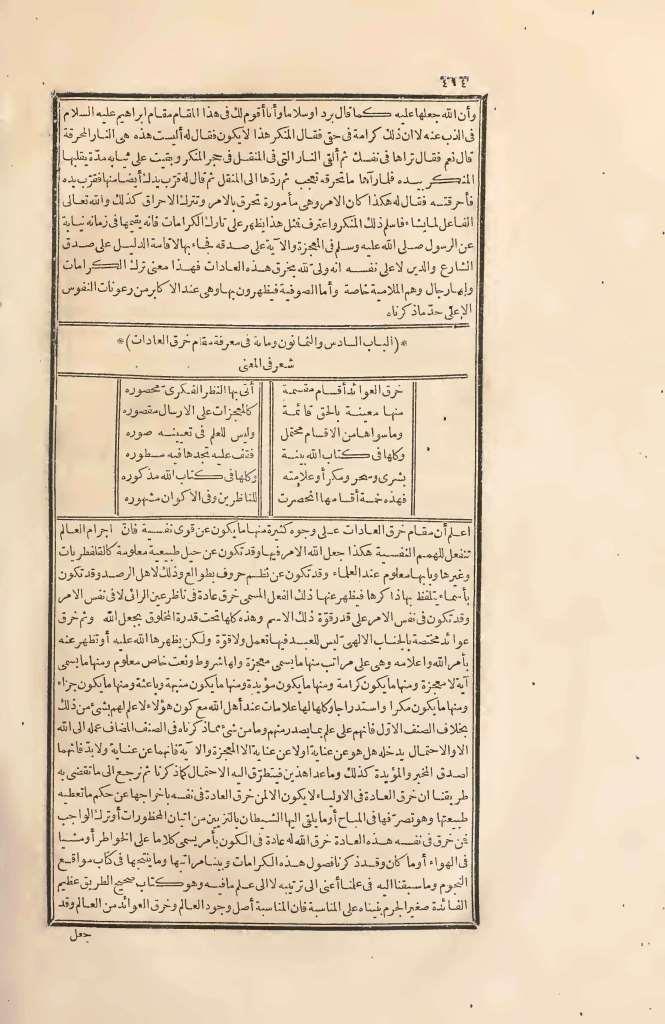 ٤٦٤
وأن الله جعلها عليه كما قال بردا وسلاما وأنا أقوم لك فى هذا المقام مقام ابراهيم عليه السلام
فى الذب عنه لا ان ذلك كرامة فى حقى فقال المنكر هذا لا يكون فقال له أليست هذه هى النار المحرقة
قال نعم فقال تراها فى نفسك ثم ألقى النار التى فى المنقل فى حجر المنكر وبقيت على ثيابه مدّة يقلبها
المنكر بيده فلما رآها ما تحرقه تعجب ثم ردّها الى المنقل ثم قال له قرّب يدك أيضا منها فقرّب يده
فأحرقته فقال له هكذا كان الامر وهى مأمورة تحرق بالامر وتترك الاحراق كذلك والله تعالى
الفاعل لما يشاء فأسلم ذلك المنكر واعترف فمثل هذا يظهر على تارك الكرامات فانه يقيمها فى زمانه نيابة
عن الرسول صلى الله عليه وسلم فى المعجزة والآية على صدقه فجاء بها لاقامة الدليل على صدق
الشارع والدين لا على نفسه انه ولىّ لله بخرق هذه العادات فهذا معنى ترك الكرامات
ولها رجال وهم الملامية خاصة وأما الصوفية فيظهرون بها وهى عند الاكابر من رعونات النفوس
الا على حدّ ما ذكرناه
* (الباب السادس والثمانون ومائة فى معرفة مقام خرق العادات) *
شعر فى المعنى
خرق العوائد أقسام مقسمة أتى بها النظر الفكرى محصوره
منها معينة بالحق قائمة كالمعجزات على الارسال مقصوره
وما سواها من الاقسام محتمل وليس للعلم فى تعيينه صوره
وكلها فى كتاب الله بينة فقف عليه تجدها فيه مسطوره
بشرى وسحر ومكر أو علامته وكلها فى كتاب الله مذكوره
فهذه خمسة أقسامها انحصرت للناظرين وفى الاكوان مشهوره
اعلم أن مقام خرق العادات على وجوه كثيرة منها ما يكون عن قوى نفسية فان اجرام العالم
تنفعل للهمم النفسية هكذا جعل الله الامر فيها وقد تكون عن حيل طبيعية معلومة كالقلفطريات
وغيرها وبابها معلوم عند العلماء وقد تكون عن نظم حروف بطوالع وذلك لاهل الرصد وقد تكون
بأسماء يتلفظ بها ذاكرها فيظهر عنها ذلك الفعل المسمى خرق عادة فى ناظر عين الرائى لا فى نفس الامر
وقد تكون فى نفس الامر على قدر قوّة ذلك الاسم وهذه كلها تحت قدرة المخلوق بجعل الله وثم خرق
عوائد مختصة بالجناب الالهى ليس للعبد فيها تعمل ولا قوّة ولكن يظهرها الله عليه أو تظهر عنه
بأمر الله واعلامه وهى على مراتب منها ما يسمى معجزة ولها شروط ونعت خاص معلوم ومنها ما يسمى
آية لا معجزة ومنها ما يكون كرامة ومنها ما يكون مؤيدة ومنها ما يكون منبهة وباعثة ومنها ما يكون جزاء
ومنها ما يكون مكرا واستدراجا وكلها لها علامات عند أهل الله مع كون هؤلاء لا علم لهم بشئ من ذلك
بخلاف الصنف الاوّل فانهم على علم بما يصدر منهم وما من شئ مما ذكرناه فى الصنف المضاف عمله الى الله
الا والاحتمال يدخله هل هو عن عناية أو لا عن عناية الا المعجزة والآية فانهما عن عناية ولا بدّ فانهما
لصدق المخبر والمؤيدة كذلك وما عدا هذين فيتطرّق اليه الاحتمال كما ذكرنا ثم نرجع الى ما تقضى به
طريقنا ان خرق العادة فى الاولياء لا يكون الا لمن خرق العادة فى نفسه باخراجها عن حكم ما تعطيه
طبيعتها وهو تصرّفها فى المباح أو ما يلقى اليها الشيطان بالتزيين من اتيان المحظورات أو ترك الواجب
فمن خرق فى نفسه هذه العادة خرق الله له عادة فى الكون بأمر يسمى كلاما على الخواطر أو مشيا
فى الهواء أو ما كان وقد ذكرنا فصول هذه الكرامات وبينا مراتبها وما ينتجها فى كتاب مواقع
النجوم وما سبقنا اليه فى علمنا أعنى الى ترتيبه لا الى علم ما فيه وهو كتاب صحيح الطريق عظيم
الفائدة صغير الجرم بنيناه على المناسبة فان المناسبة أصل وجود العالم وخرق العوائد من العالم وقد
جعل